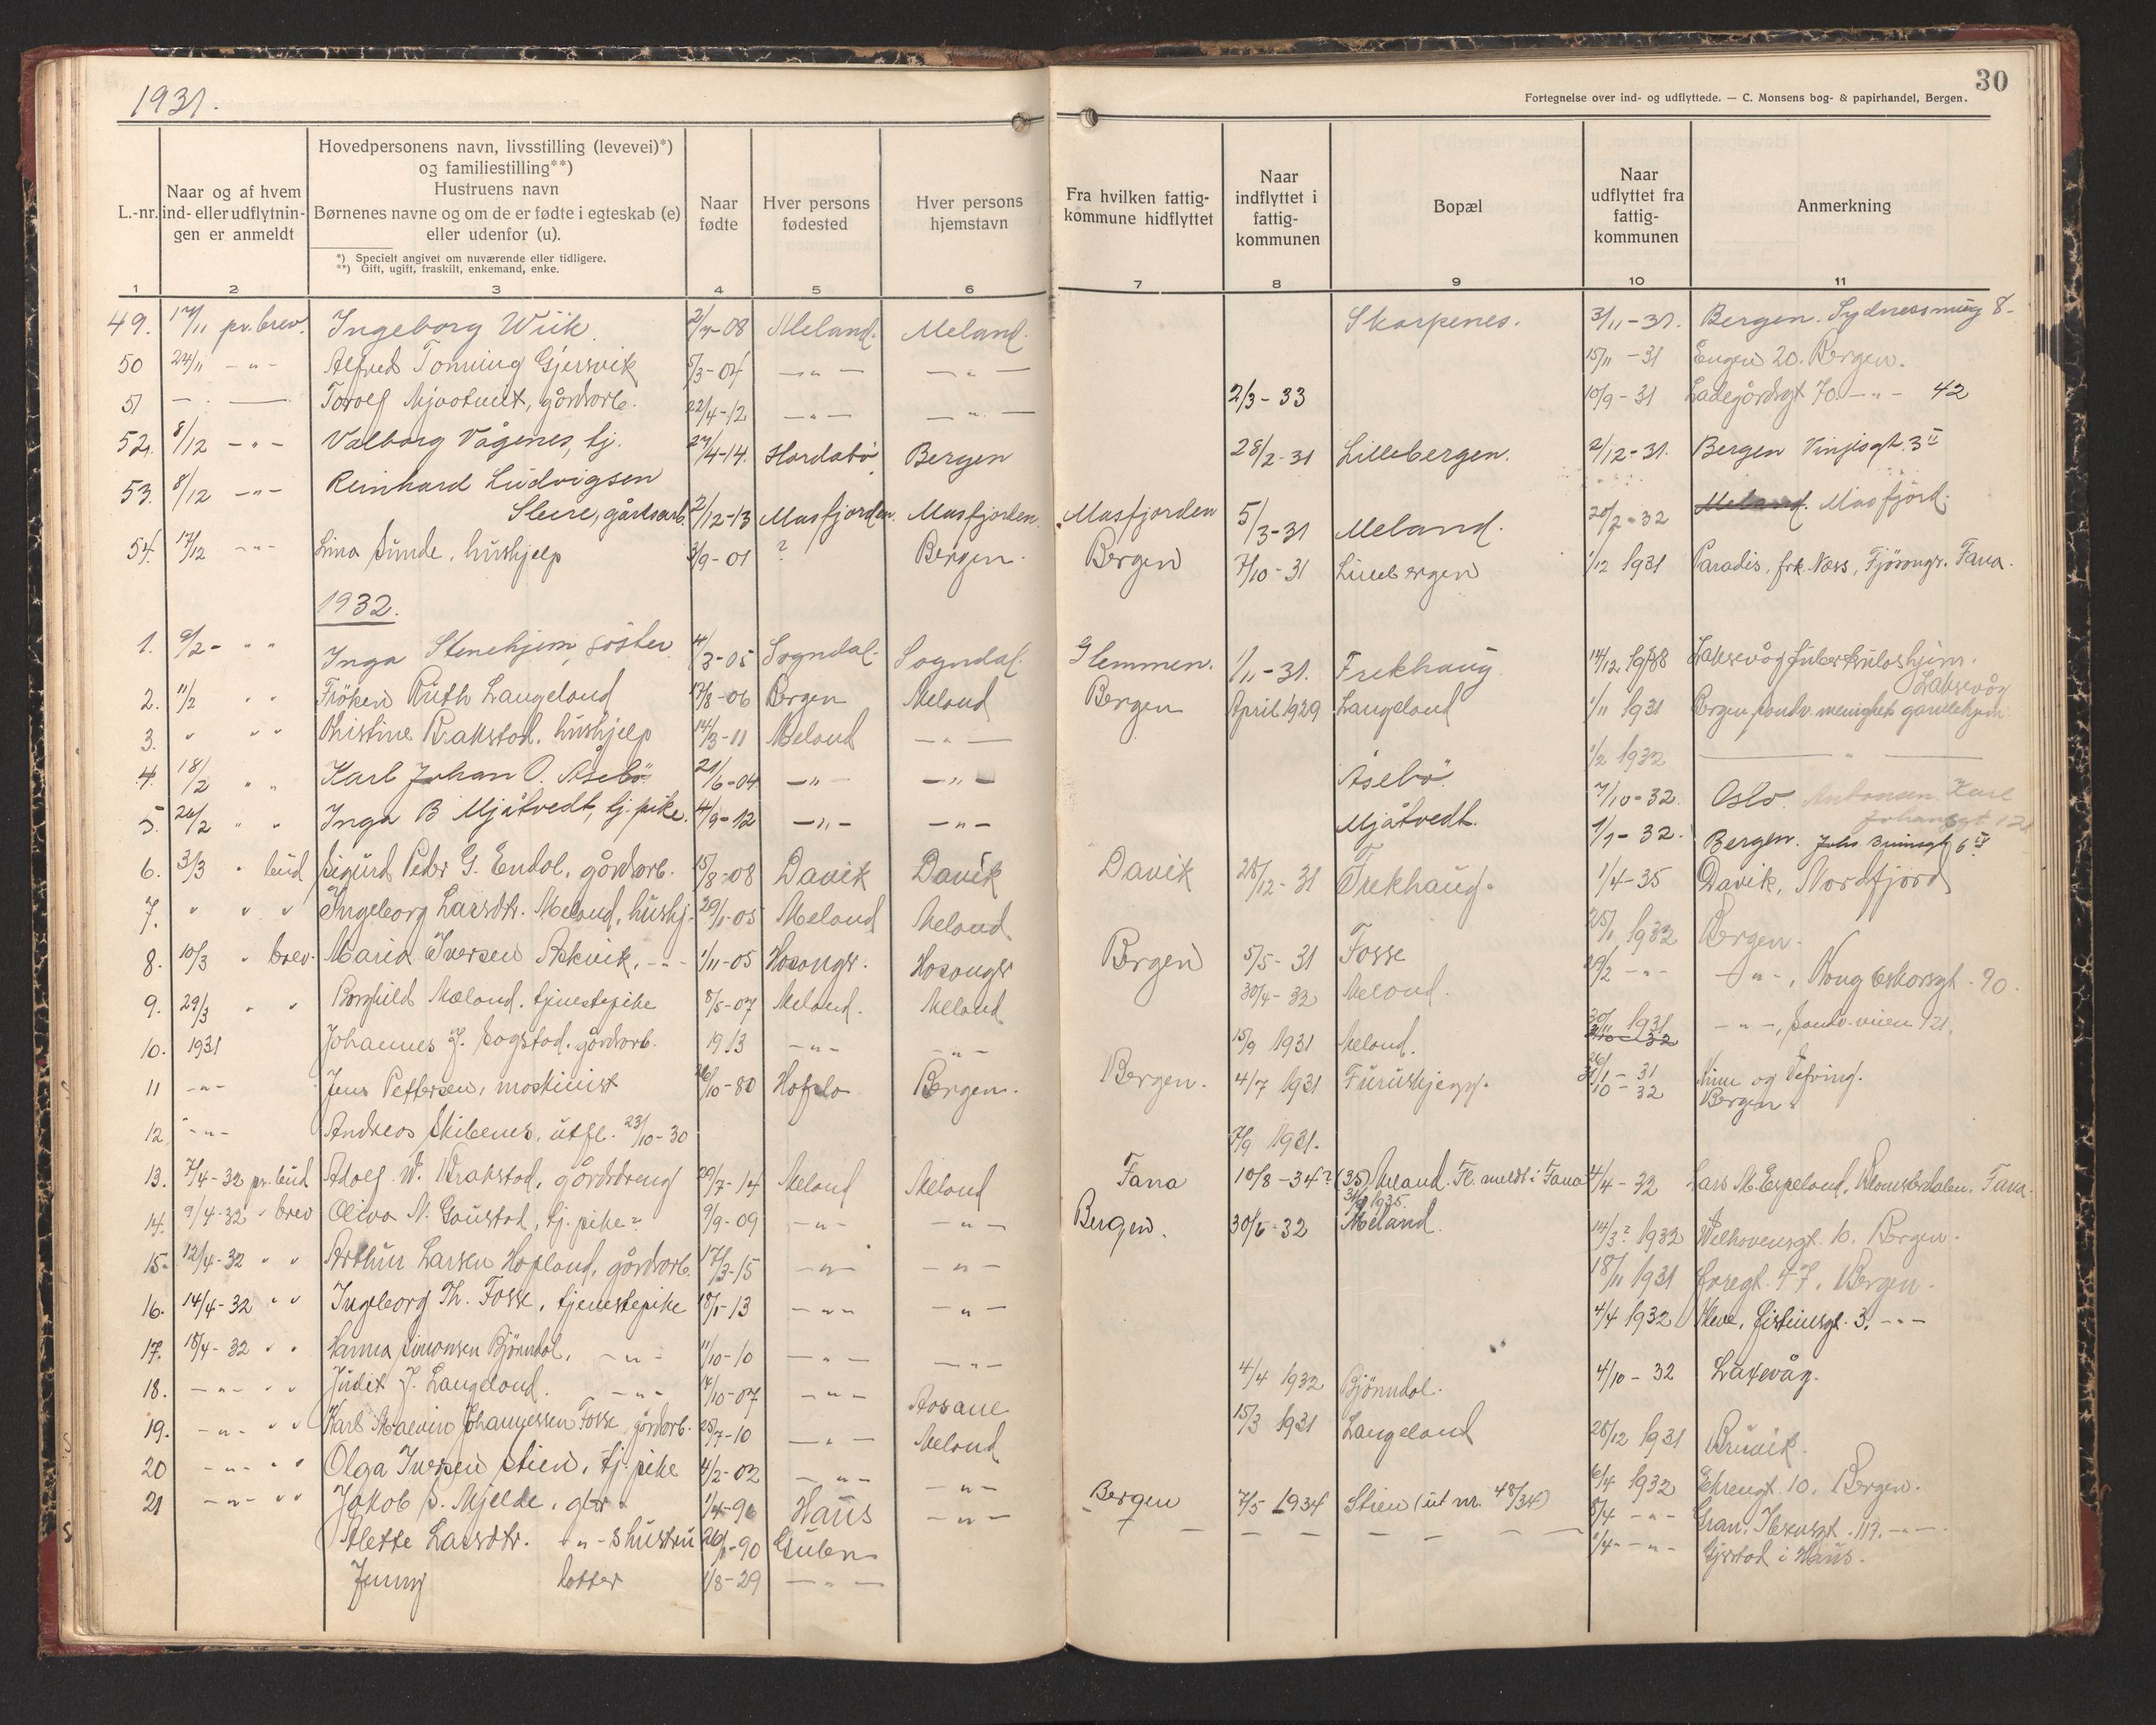 1931.
30
Fortegnelse over ind- og udflyttede. — C. Monsens bog- & papirhandel, Bergen.
L.-nr.
Naar og af hvem ind- eller udflytnin- gen er anmeldt
Hovedpersonens navn, livsstilling (levevei)*)
og familiestilling**)
Hustruens navn
Børnenes navne og om de er fødte i egteskab (e)
eller udenfor (u).
*) Specielt angivet om nuværende eller tidligere.
**) Gift, ugift, fraskilt, enkemand, enke.
Naar fødte
Hver persons fødested
Hver persons hjemstavn
Fra hvilken fattig- kommune hidflyttet
Naar indflyttet i fattig- kommunen
Bopæl
Naar udflyttet fra fattig- kommunen
Anmerkning
1 2 3 4 5 6 7 8 9 10 11
49. 17/11 pr. brev. Ingeborg Wiik. 2/7-08 Meland. Meland. Skarpenes. 3/11-31. Bergen. Sydnessmug 8.
50 24/11 -„- Alfred Tonning Gjersvik 5/3-04 -„- -„- 15/11-31 Engen 20. Bergen.
51 Torolf Mjaatveit, gårdsarb. 22/4-12 -„- -„- 2/3-33 10/9-31 Ladegårdsgt 70. -„- 42
52. 8/12 -„- Valborg Vågenes, tj. 27/4-14. Hordabø Bergen 28/2-31 Lillebergen. 2/12-31. Bergen Vinjesgt. 3 II
53. 8/12 -„- Reinhard Ludvigsen
Sleire, gårdsarb. 2/12-13 Masfjorden. Masfjorden. Masfjorden 5/3-31 Meland. 20/2-32 Meland. Masfjord.
54. 17/12 -„- Lina Sunde, hushjelp 3/9-01 ? Bergen. Bergen 7/10-31 Lillebergen 1/12 1931 Paradis, frk. Næss, Fjøsangr. Fana.
1932.
1. 9/2- „ „ Inga Stenehjem, søster 4/3-05 Sogndal. Sogndal. Glemmen. 1/11-31. Frekhaug 14/12 1938 Laksevåg tuberkuloshjem.
Laksevåg
2. 11/2 „ „ Frøken Ruth Langeland 17/8-06 Bergen Meland Bergen April 1929 Langeland 1/11 1931 Bergen, Sandv. menighets gamlehjem
3. „ „ „ Kristine Krakstad, hushjelp 14/3-11 Meland -„- 1/2 1932 -„-
4. 18/2 „ „ Karl Johan O. Åsebø 21/6-04 -„- -„- Åsebø. 7/10-32. Oslo. Karl
Johansgt 12
5. 26/2 „ „ Inga B Mjåtvedt, tj. pike. 4/9-12 -„- -„- Mjåtvedt. 1/1-32. Bergen.
6. 3/3 „ bud Sigurd Peder G. Endal, gårdsarb. 15/8-08 Davik Davik Davik 28/12-31 Frekhaug. 1/4-35 Davik, Nordfjord
7. „ „ „ Ingeborg Larsdtr. Meland, hushj. 29/1-05 Meland Meland 25/1 1932 Bergen.
8. 10/3 „ brev. Maria Iversen Askvik, -„- 1/11-05 Hosangr. Hosangr Bergen 5/5-31 Fosse 29/2 -„- -„-, Kong Oskarsgt. 90.
9. 29/3 „ „ Borghild Mæland, tjenestepike 8/5-07 Meland. Meland 30/4-32 Meland. 30/ 1931 -„-, Sandv.veien 121.
10. 1931 Johannes J. Sagstad, gårdsarb. 1913 -„- -„- 15/9 1931 Meland.
11 -„- Jens Pettersen, maskinist 26/10-80 Bergen. Bergen. 4/7 1931 Furuskjegg. 26/1-31
31/10-32 Bergen.
12. -„- Andreas Skibenes, utfl. 23/10-30 7/9 1931.
13. 7/4-32 pr. bud Adolf W. Krakstad, gårdsdreng 29/7-14 Meland Meland Fana 10/8-34? (35) Meland. Fl. meldt i Fana 4/4-32 Lars M. Espeland, Fana.
31/8 1935.
14. 9/4-32 „ brev Oliva N. Gaustad, tj. pike 9/9-09 -„- -„- Bergen. 30/5-32 Meland. 14/3? 1932 Welhavensgt. 10. Bergen.
15. 12/4-32 „ „ Arthur Larsen Hopland, gårdsarb. 17/3-15 -„- -„- 18/11 1931 47, Bergen.
16. 14/4-32 „ „ Ingeborg Th. Fosse, tjenestepike 18/1-13 -„- -„- 4/4 1932 3. -„-
17. 18/4-32 „ „ Hanna Simonsen Bjørndal, -„- 11/10-10 -„- -„- 4/4 1932 Bjørndal. 4/10-32 Laxevåg.
18. -„- „ „ Judit J. Langeland. -„- /10-07 -„- Aasane 15/3 1931 Langeland
19. -„- „ „ Karl Malvin Johannessen Fosse, gårdsarb. 25/7-10 -„- Meland 28/12 1931 Bruvik.
20 -„- „ „ Olga Iversen Stien, tj. pike 4/2-02 -„- -„- Bergen 7/5 1934 Stien (ut nr. 48/34) 6/4 1932 10. Bergen.
21 -„- „ „ Jakob S. Mjelde, gbr. 1/4-90 Haus -„- 8/4 -„- 117. -„-
Alette Larsdtr. -„-s hustru 26/1-90 Gulen 1/4 -„- Gjerstad i Haus.
Jenny datter 1/8-29 -„-